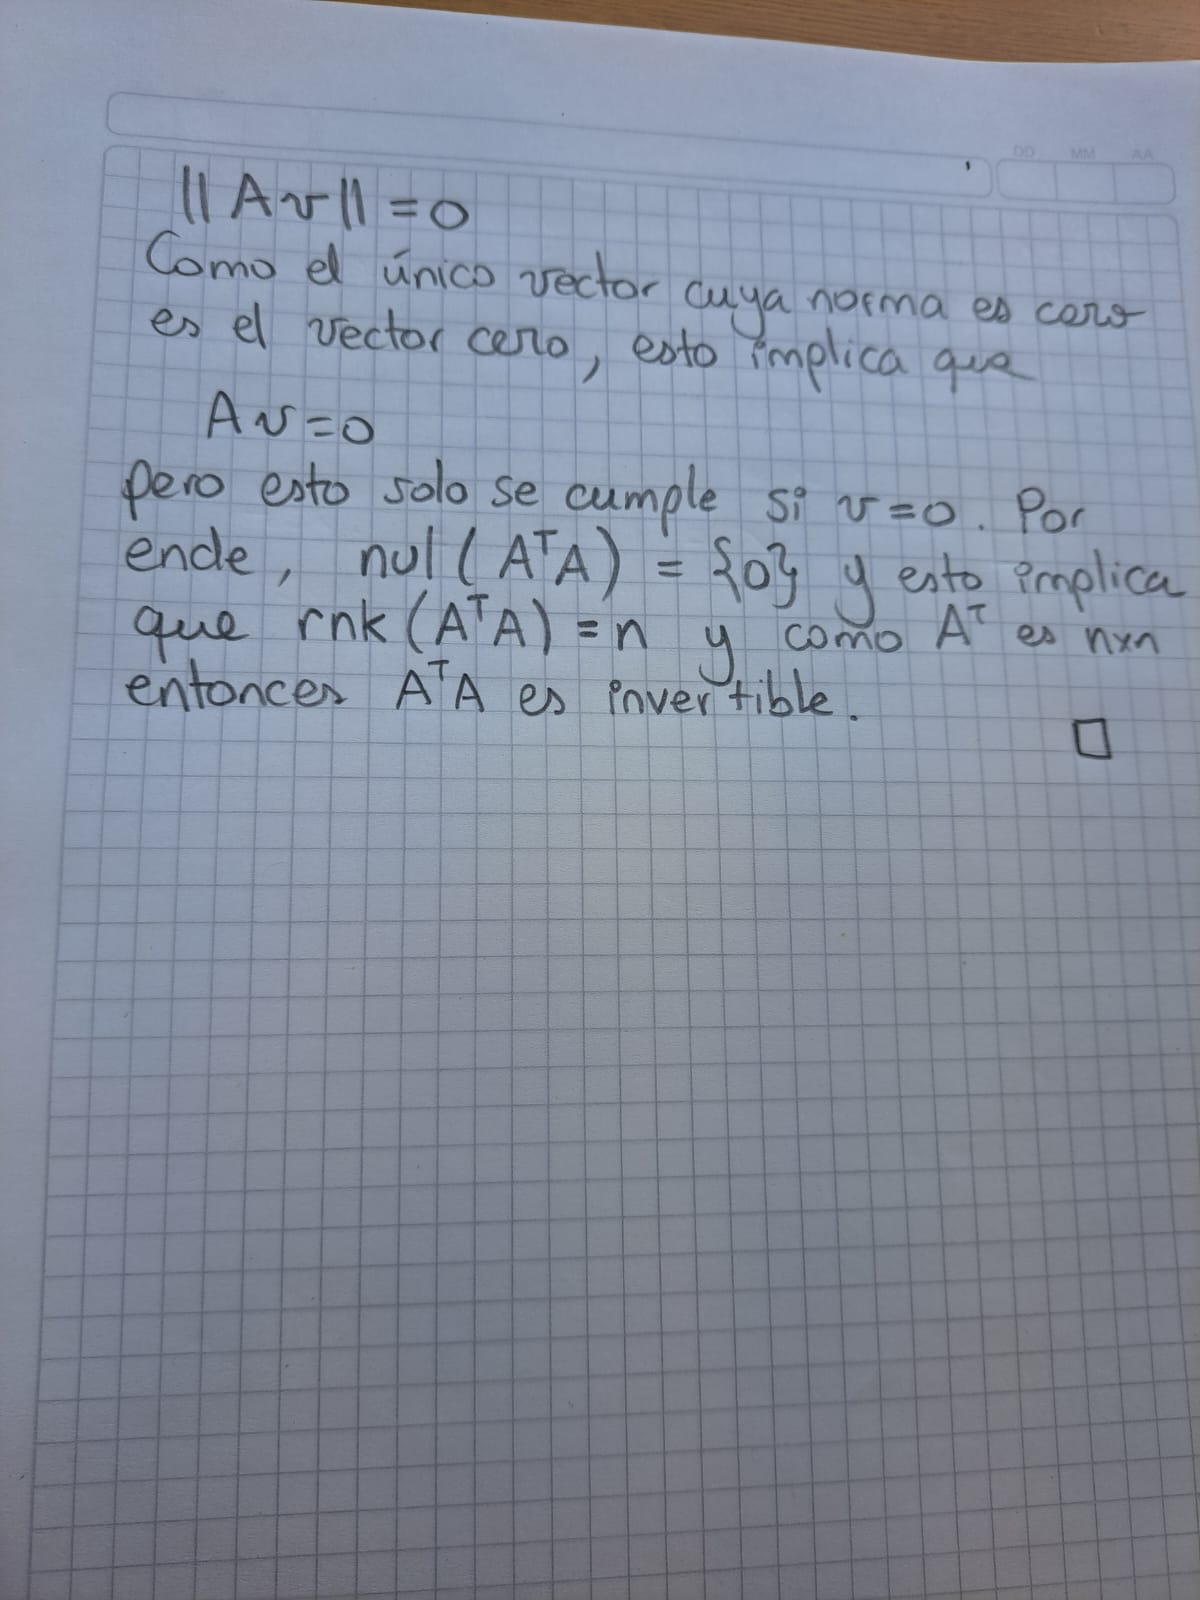 DD MM AA
||Av|| = 0
Como el único vector cuya norma es cero
es el vector cero, esto implica que
Av = 0
pero esto solo se cumple si v = 0. Por
ende, nul(AᵀA) = {0} y esto implica
que rnk(AᵀA) = n y como Aᵀ es nxn
entonces AᵀA es invertible.
□